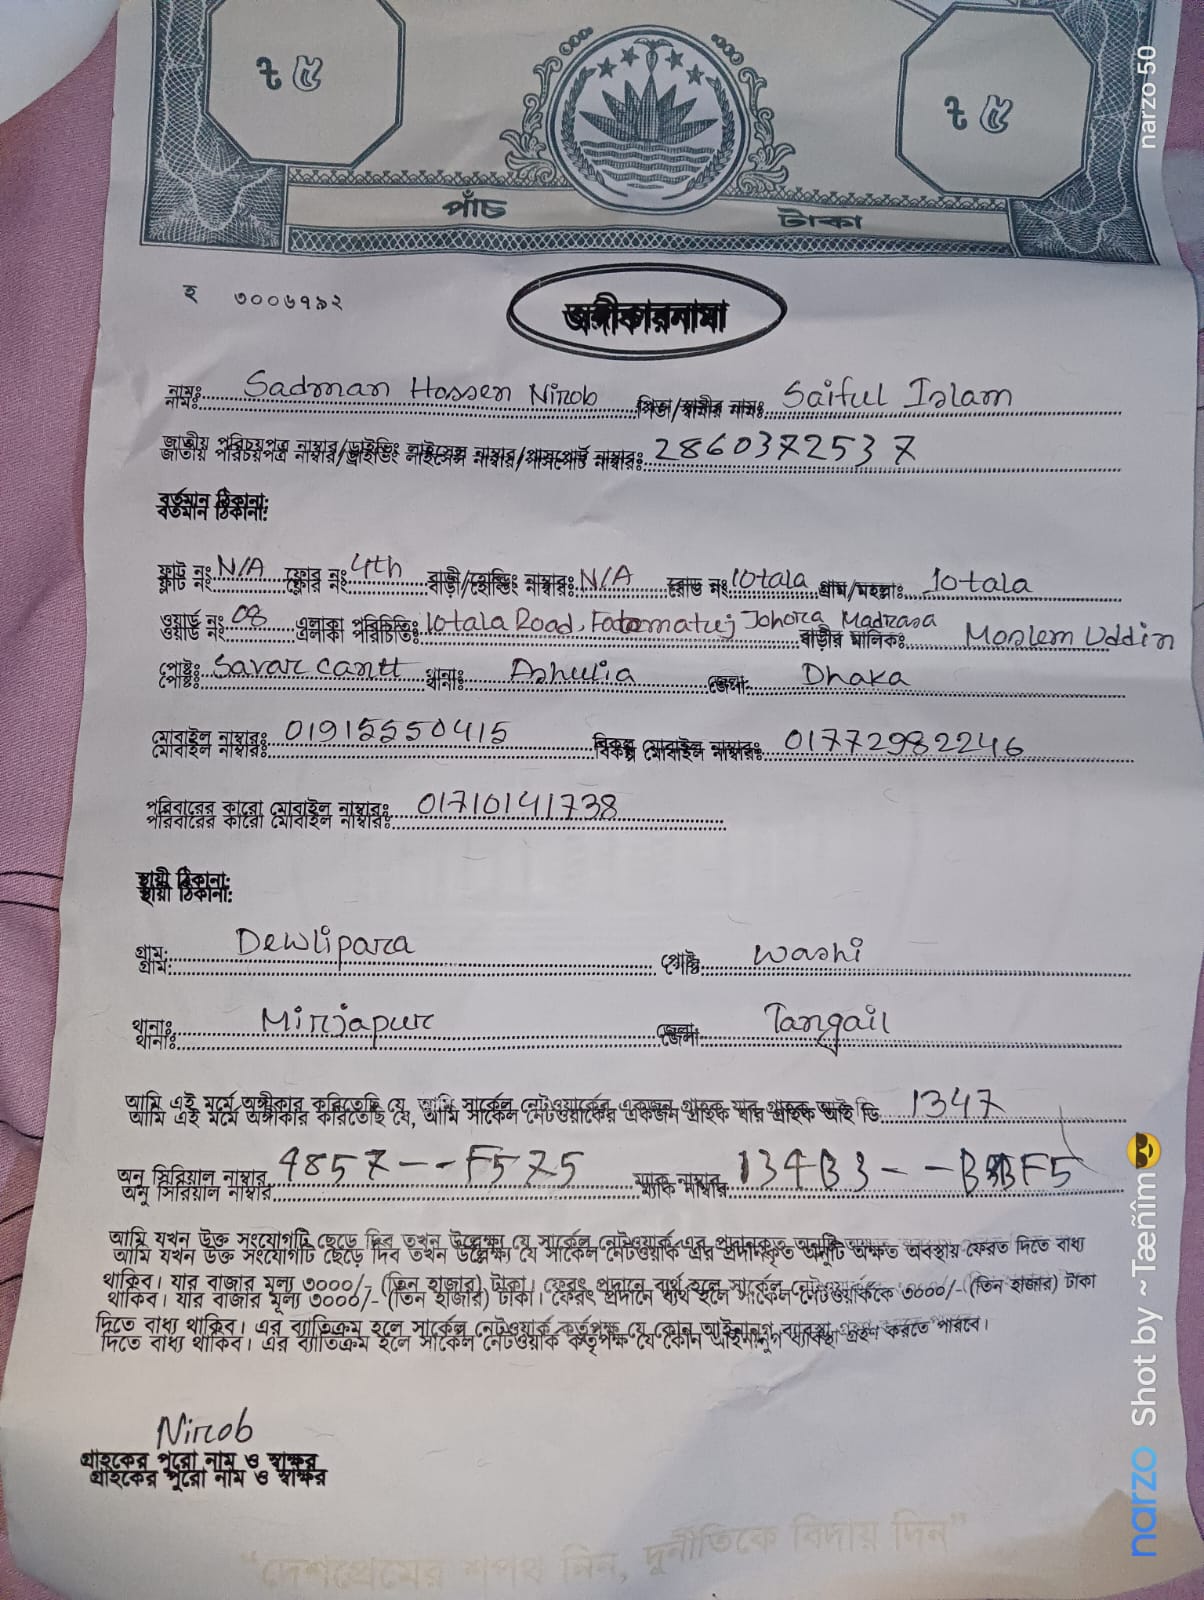 ৳ ৫ ৳ ৫
পাঁচ টাকা
হ ৩০০৬৭৯২
অঙ্গীকারনামা
নামঃ Sadman Hossen Nirob পিতা/স্বামীর নামঃ Saiful Islam
জাতীয় পরিচয়পত্র নাম্বার/ড্রাইভিং লাইসেন্স নাম্বার/পাসপোর্ট নাম্বারঃ 2860372537
বর্তমান ঠিকানা:
ফ্লাট নং N/A ফ্লোর নং 4th বাড়ী/হোল্ডিং নাম্বারঃ N/A রোড নং 10tala গ্রাম/মহল্লাঃ 10tala
ওয়ার্ড নং 08 এলাকা পরিচিতিঃ 10tala Road, Fatematuj Johora Madrasa বাড়ীর মালিকঃ Moslem Uddin
পোষ্টঃ Savar cantt থানাঃ Ashulia জেলাঃ Dhaka
মোবাইল নাম্বারঃ 01915550415 বিকল্প মোবাইল নাম্বারঃ 01772982246
পরিবারের কারো মোবাইল নাম্বারঃ 01710141738
স্থায়ী ঠিকানা:
গ্রাম: Dewlipara পোষ্টঃ Washi
থানাঃ Mirjapur জেলাঃ Tangail
আমি এই মর্মে অঙ্গীকার করিতেছি যে, আমি সার্কেল নেটওয়ার্কের একজন গ্রাহক যার গ্রাহক আই ডি 1347
অনু সিরিয়াল নাম্বার 4857---F575 ম্যাক নাম্বার 134B3---B3BF5
আমি যখন উক্ত সংযোগটি ছেড়ে দিব তখন উল্লেক্ষ্য যে সার্কেল নেটওয়ার্ক এর প্রদানকৃত অনুটি অক্ষত অবস্থায় ফেরত দিতে বাধ্য
থাকিব। যার বাজার মূল্য ৩০০০/- (তিন হাজার) টাকা। ফেরৎ প্রদানে ব্যর্থ হলে সার্কেল নেটওয়ার্ককে ৩০০০/-(তিন হাজার) টাকা
দিতে বাধ্য থাকিব। এর ব্যাতিক্রম হলে সার্কেল নেটওয়ার্ক কর্তৃপক্ষ যে কোন আইনানুগ ব্যবস্থা গ্রহণ করতে পারবে।
Nirob
গ্রাহকের পুরো নাম ও স্বাক্ষর
"দেশপ্রেমের শপথ নিন, দুর্নীতিকে বিদায় দিন"
narzo Shot by ~Tæñîm😎
narzo 50